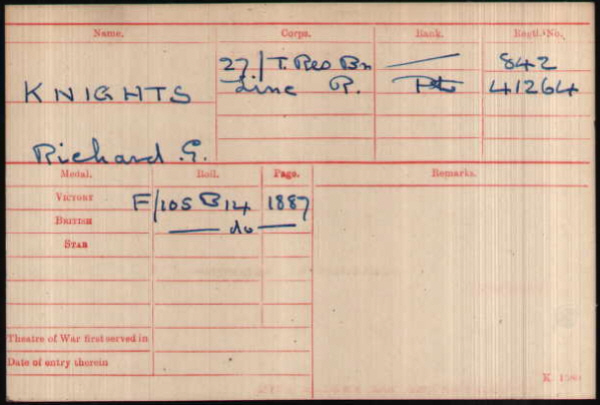 Name. Corps. Rank. Regtl. No.
27/T. Res Bn — 842
KNIGHTS Linc R. Pte 41264
Richard G.
Medal. Roll. Page. Remarks.
VICTORY F/105 B14 1887
BRITISH — do —
STAR
Theatre of War first served in
Date of entry therein
K. 1380